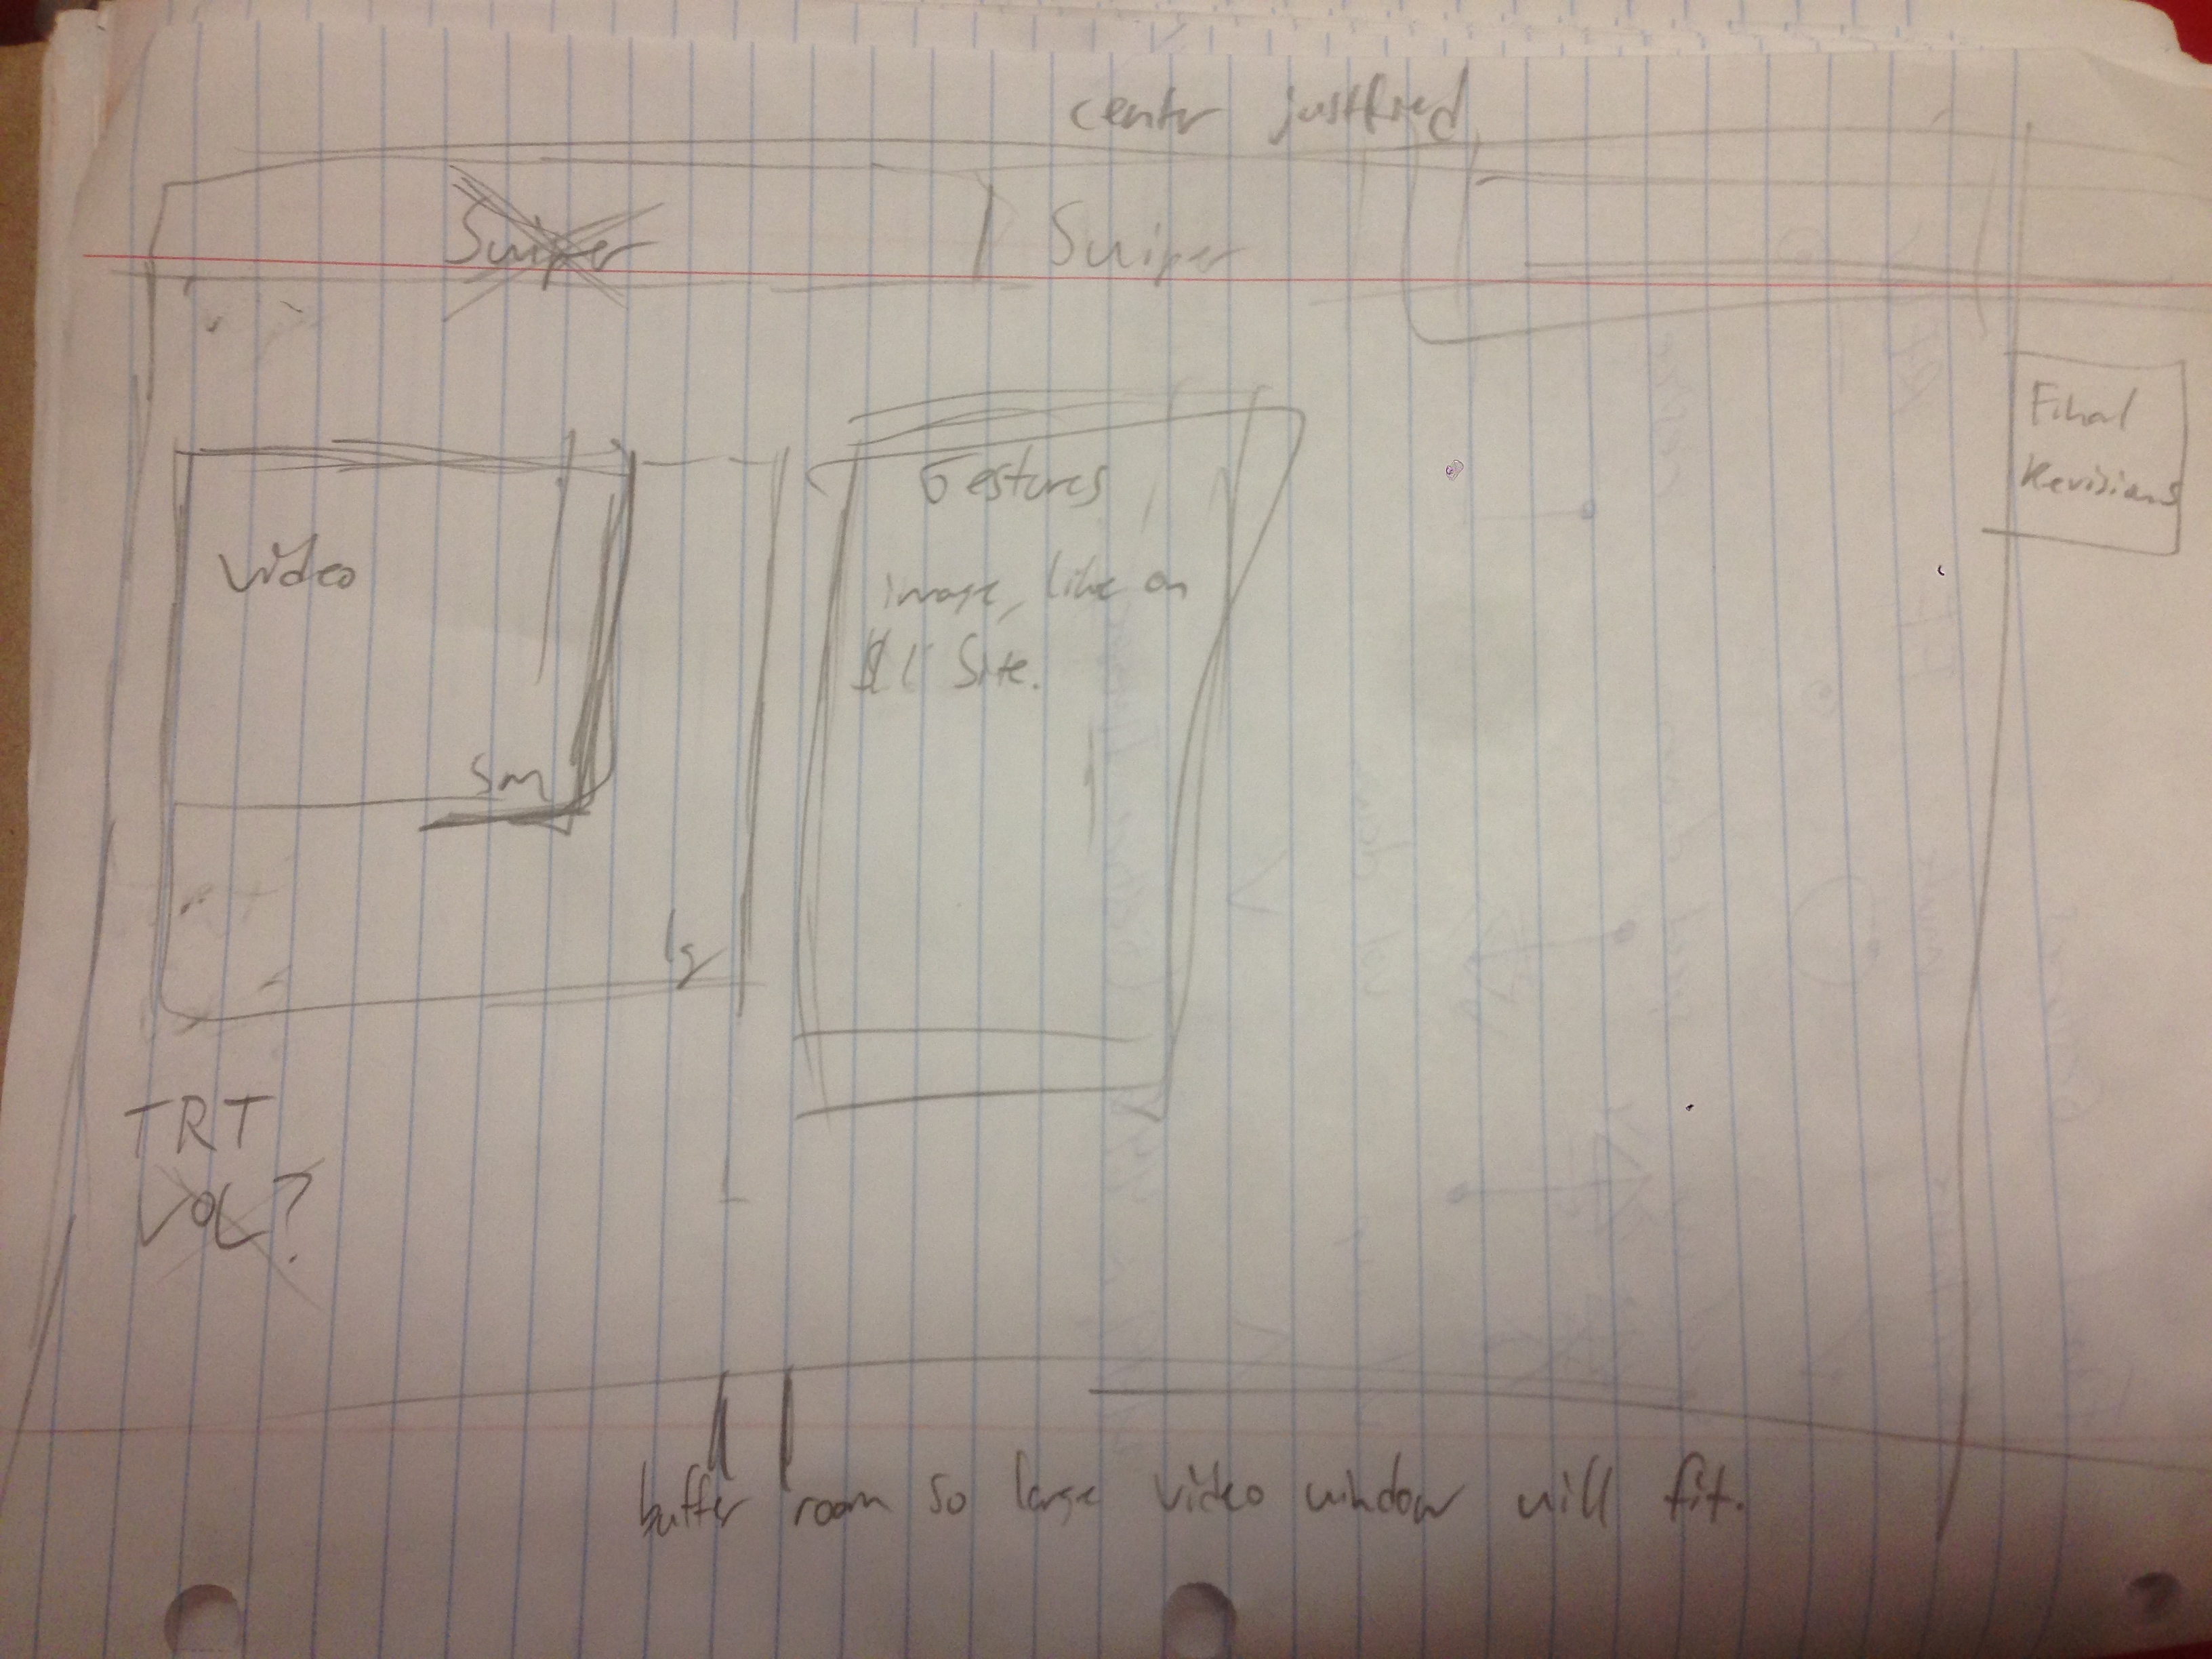 center justfied
Swiper
Swiper
Final
Revisions
Video
sm
lg
Gestures
image, like on
$1 Site.
TRT
VOL?
buffer room so large video window will fit.